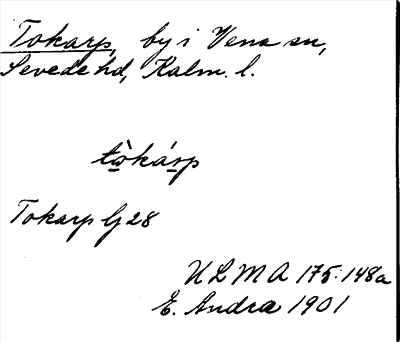 Tokarp, by i Vena sn,
Sevede hd, Kalm. l.
tòkárp
Tokarp Gj 28
ULMA 175:148a
E. Andra 1901